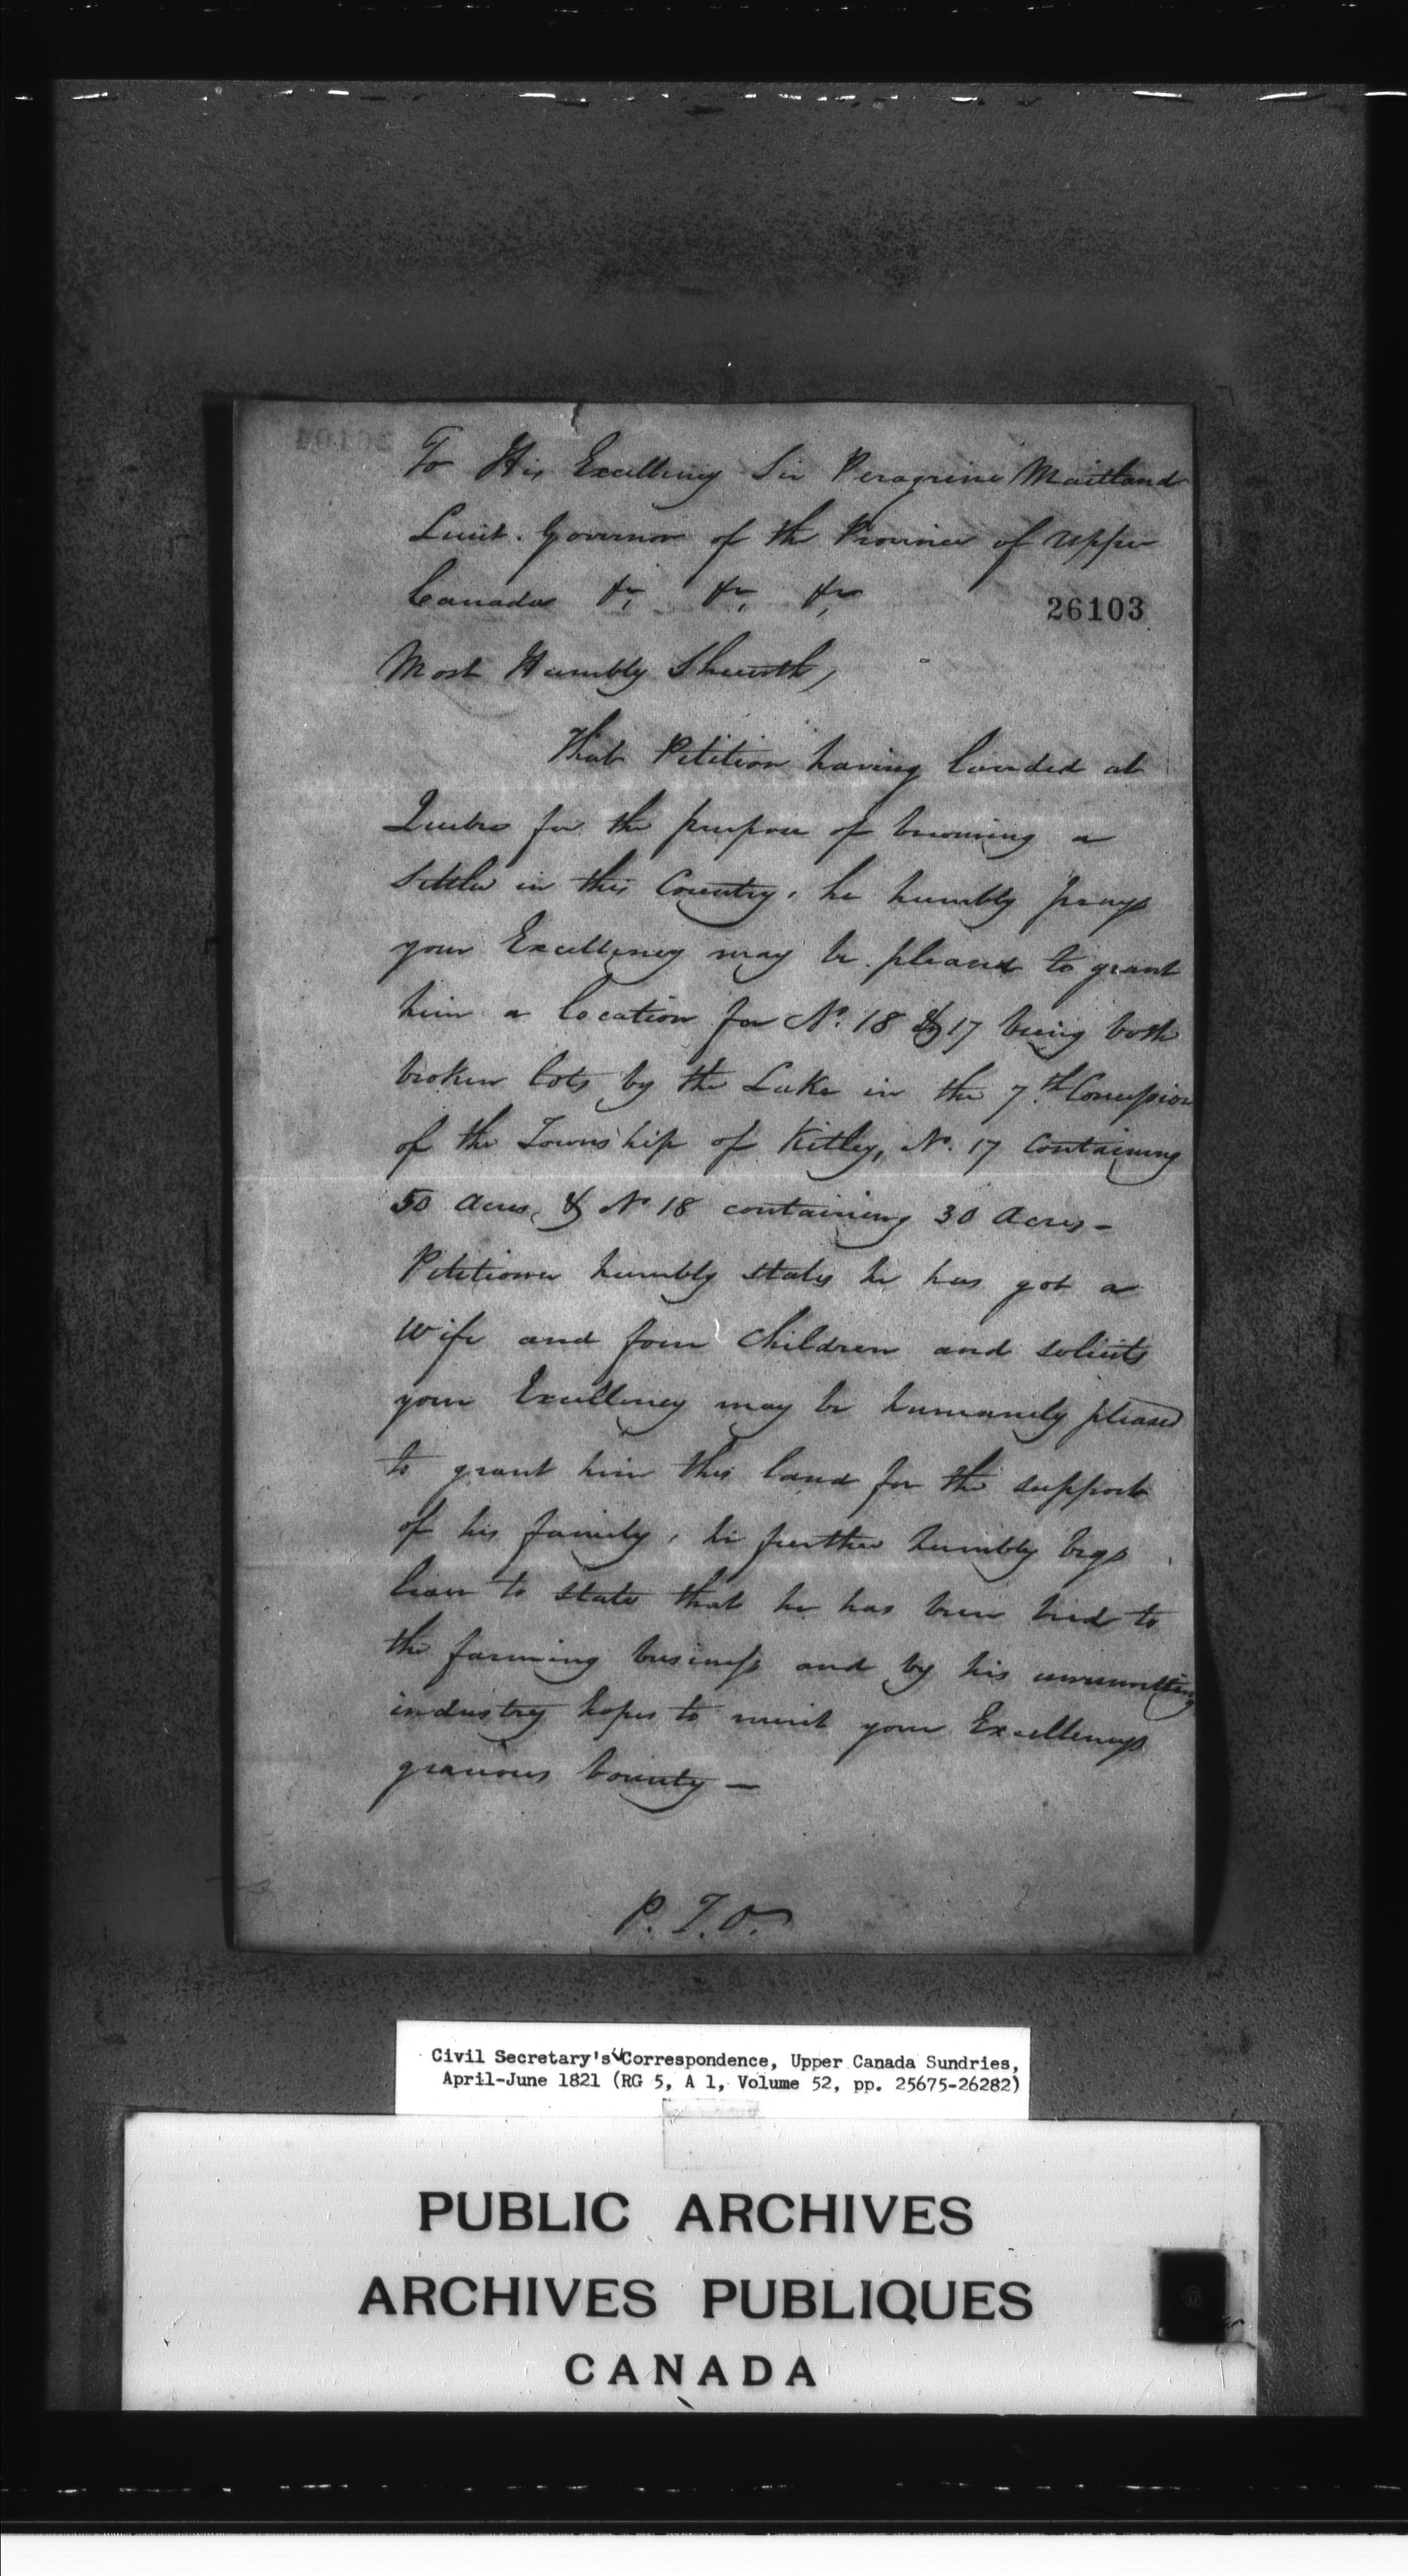 To His Excellency Sir Peregrine Maitland
Lieut. Governor of the Province of Upper
Canada &c, &c, &c,
26103
Most Humbly Sheweth,
That Petition having landed at
Quebec for the purpose of becoming a
Settler in this Country, he humbly prays
your Excellency may be pleased to grant
him a location for No. 18 & 17 being both
broken lots by the Lake in the 7th Concession
of the Township of Kitley, No. 17 containing
50 Acres & No 18 containing 30 Acres -
Petitioner humbly states he has got a
Wife and four Children and solicits
your Excellency may be humanely pleased
to grant him this land for the support
of his family, he further humbly begs
leave to state that he has been bred to
the farming business and by his unremitting
industry hopes to merit your Excellencys
gracious bounty -
P.T.O.
Civil Secretary's Correspondence, Upper Canada Sundries,
April-June 1821 (RG 5, A 1, Volume 52, pp. 25675-26282)
PUBLIC ARCHIVES
ARCHIVES PUBLIQUES
CANADA